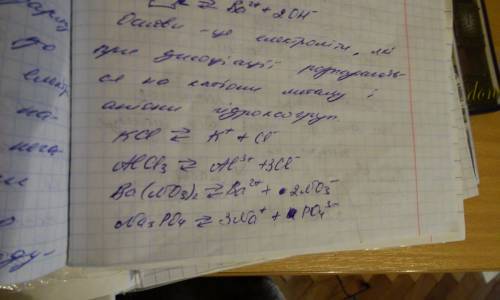 ⇄ Ba²⁺ + 2OH⁻
Основи - це електроліти, які
при дисоціації розпадають-
ся на катіони металу і
аніони гідроксогруп
KCl ⇄ K⁺ + Cl⁻
AlCl₃ ⇄ Al³⁺ + 3Cl⁻
Ba(NO₃)₂ ⇄ Ba²⁺ + 2NO₃⁻
Na₃PO₄ ⇄ 3Na⁺ + PO₄³⁻
до
на-